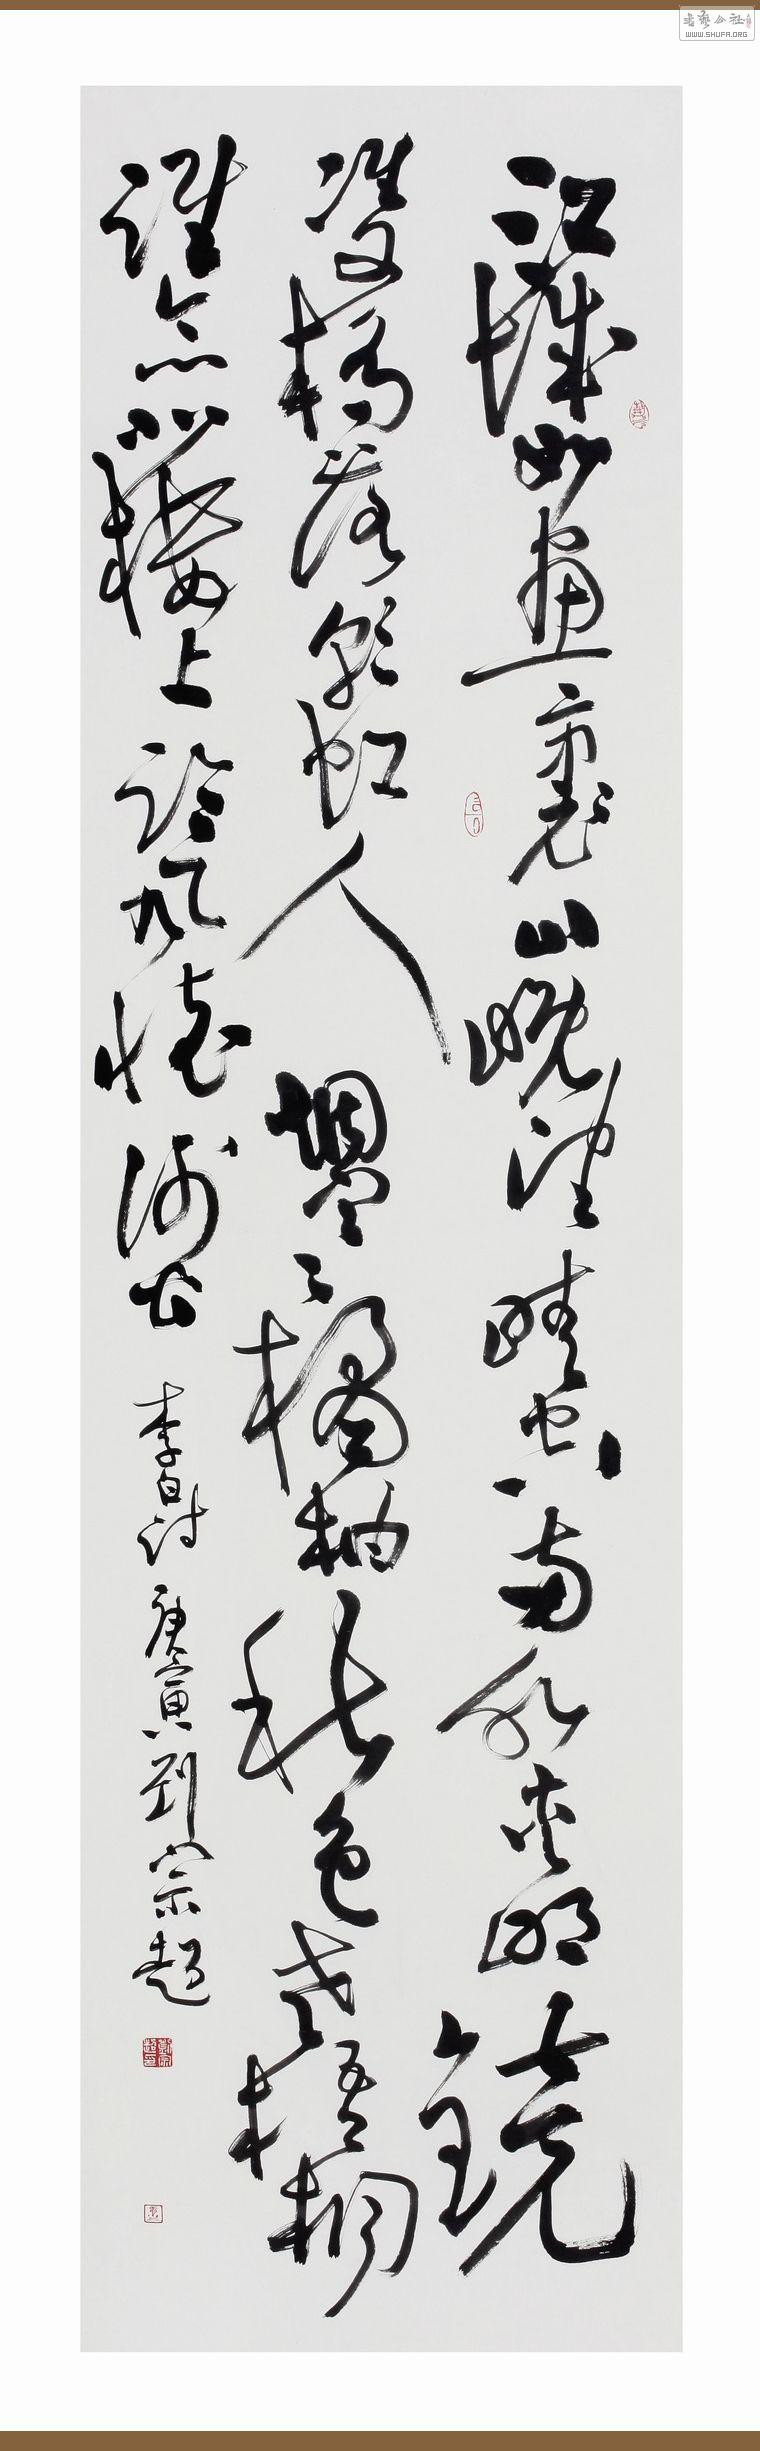 書藝公社
WWW.SHUFA.ORG
江城如畫裏山晚望晴空兩水夾明鏡
雙橋落彩虹人煙寒橘柚秋色老梧桐
誰念北樓上臨風懷謝公 李白詩 庚寅劉宗超